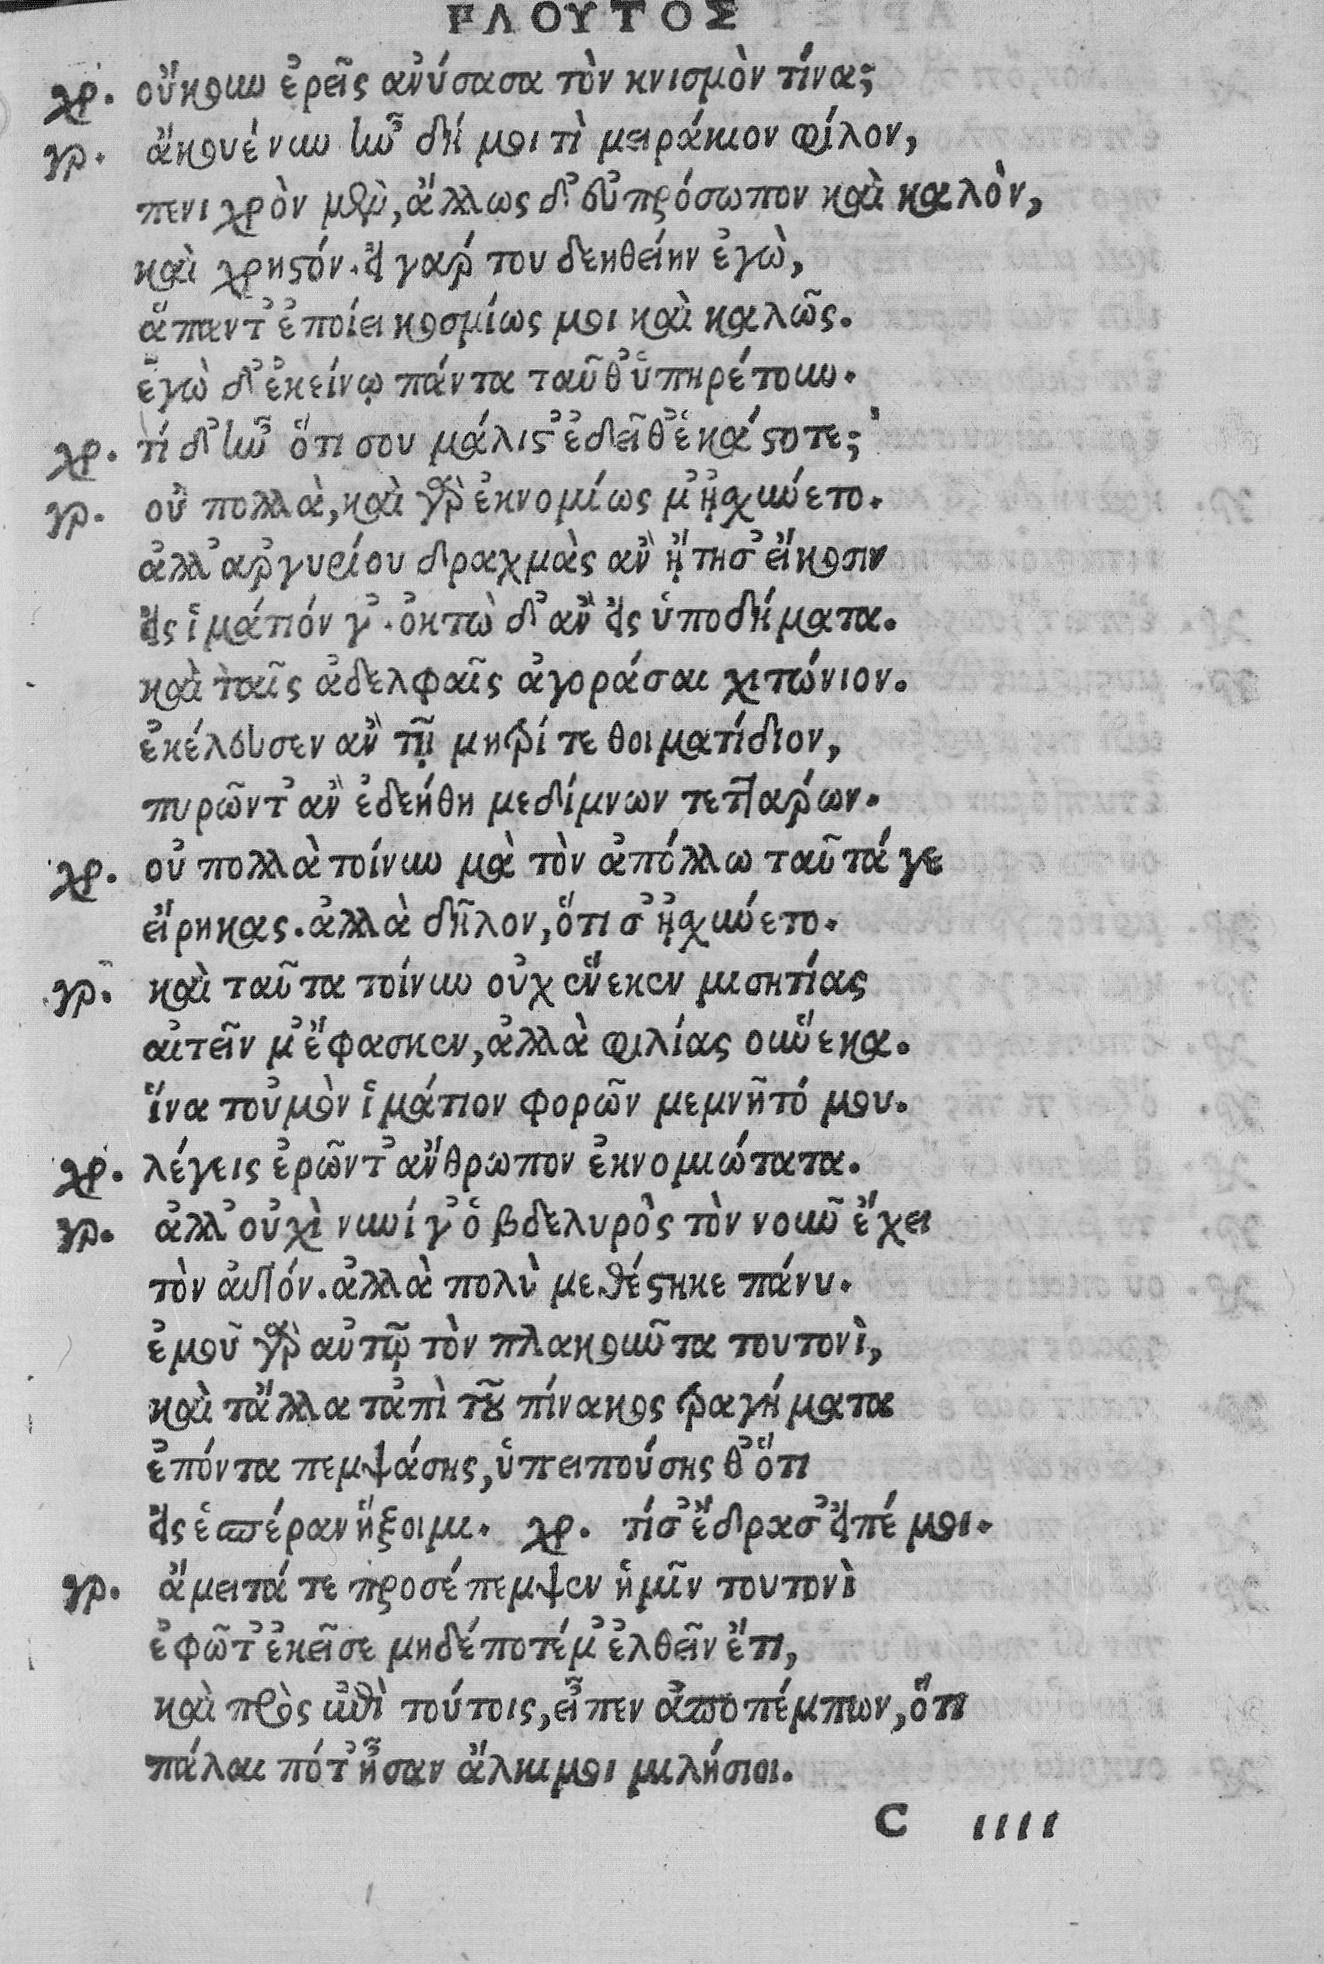 ΡΛΟΥΤΟΣ
χρ. οὔκουν ἐρεῖς ἀνύσασα τὸν κνισμὸν τίνα;
γρ. ἄκουέ νυν ἦν δή μοι τὶ μειράκιον φίλον,
πενιχρὸν μὲν, ἄλλως δ᾽ εὐπρόσωπον καὶ καλὸν,
καὶ χρηστόν. εἰ γάρ του δεηθείην ἐγὼ,
ἅπαντ᾽ ἐποίει κοσμίως μοι καὶ καλῶς.
ἐγὼ δ᾽ ἐκείνῳ πάντα ταῦθ᾽ ὑπηρέτουν.
χρ. τί δ᾽ ἦν ὅτι σου μάλιστ᾽ ἐδεῖθ᾽ ἑκάστοτε;
γρ. οὐ πολλὰ, καὶ γὰρ ἐκνομίως μ᾽ ᾐσχύνετο.
ἀλλ᾽ ἀργυρίου δραχμὰς ἂν ᾔτησ᾽ εἴκοσιν
εἰς ἱμάτιόν γ᾽. ὀκτὼ δ᾽ ἂν εἰς ὑποδήματα.
καὶ ταῖς ἀδελφαῖς ἀγοράσαι χιτώνιον.
ἐκέλευσεν ἂν τῇ μητρί τε θοιματίδιον,
πυρῶντ᾽ ἂν ἐδεήθη μεδίμνων τεττάρων.
χρ. οὐ πολλὰ τοίνυν μὰ τὸν ἀπόλλω ταῦτά γε
εἴρηκας. ἀλλὰ δῆλον, ὅτι σ᾽ ᾐσχύνετο.
γρ. καὶ ταῦτα τοίνυν οὐχ ἕνεκεν μισητίας
αἰτεῖν μ᾽ ἔφασκεν, ἀλλὰ φιλίας οὕνεκα.
ἵνα τοὐμὸν ἱμάτιον φορῶν μεμνῇτό μου.
χρ. λέγεις ἐρῶντ᾽ ἄνθρωπον ἐκνομιώτατα.
γρ. ἀλλ᾽ οὐχὶ νυνί γ᾽ ὁ βδελυρὸς τὸν νοῦν ἔχει
τὸν αὐτόν. ἀλλὰ πολὺ μεθέστηκε πάνυ.
ἐμοῦ γὰρ αὐτῷ τὸν πλακοῦντα τουτονὶ,
καὶ τἄλλα τἀπὶ τοῦ πίνακος τραγήματα
ἐπόντα πεμψάσης, ὑπειπούσης θ᾽ ὅτι
εἰς ἑσπέραν ἥξοιμι. χρ. τί σ᾽ ἔδρασ᾽ εἰπέ μοι.
γρ. ἄμειτά τε προσέπεμψεν ἡμῖν τουτονὶ
ἐφῶτ᾽ ἐκεῖσε μηδέποτέ μ᾽ ἐλθεῖν ἔτι,
καὶ πρὸς ἐπὶ τούτοις, εἶπεν ἀποπέμπων, ὅτι
πάλαι πότ᾽ ἦσαν ἄλκιμοι μιλήσιοι.
C iiii